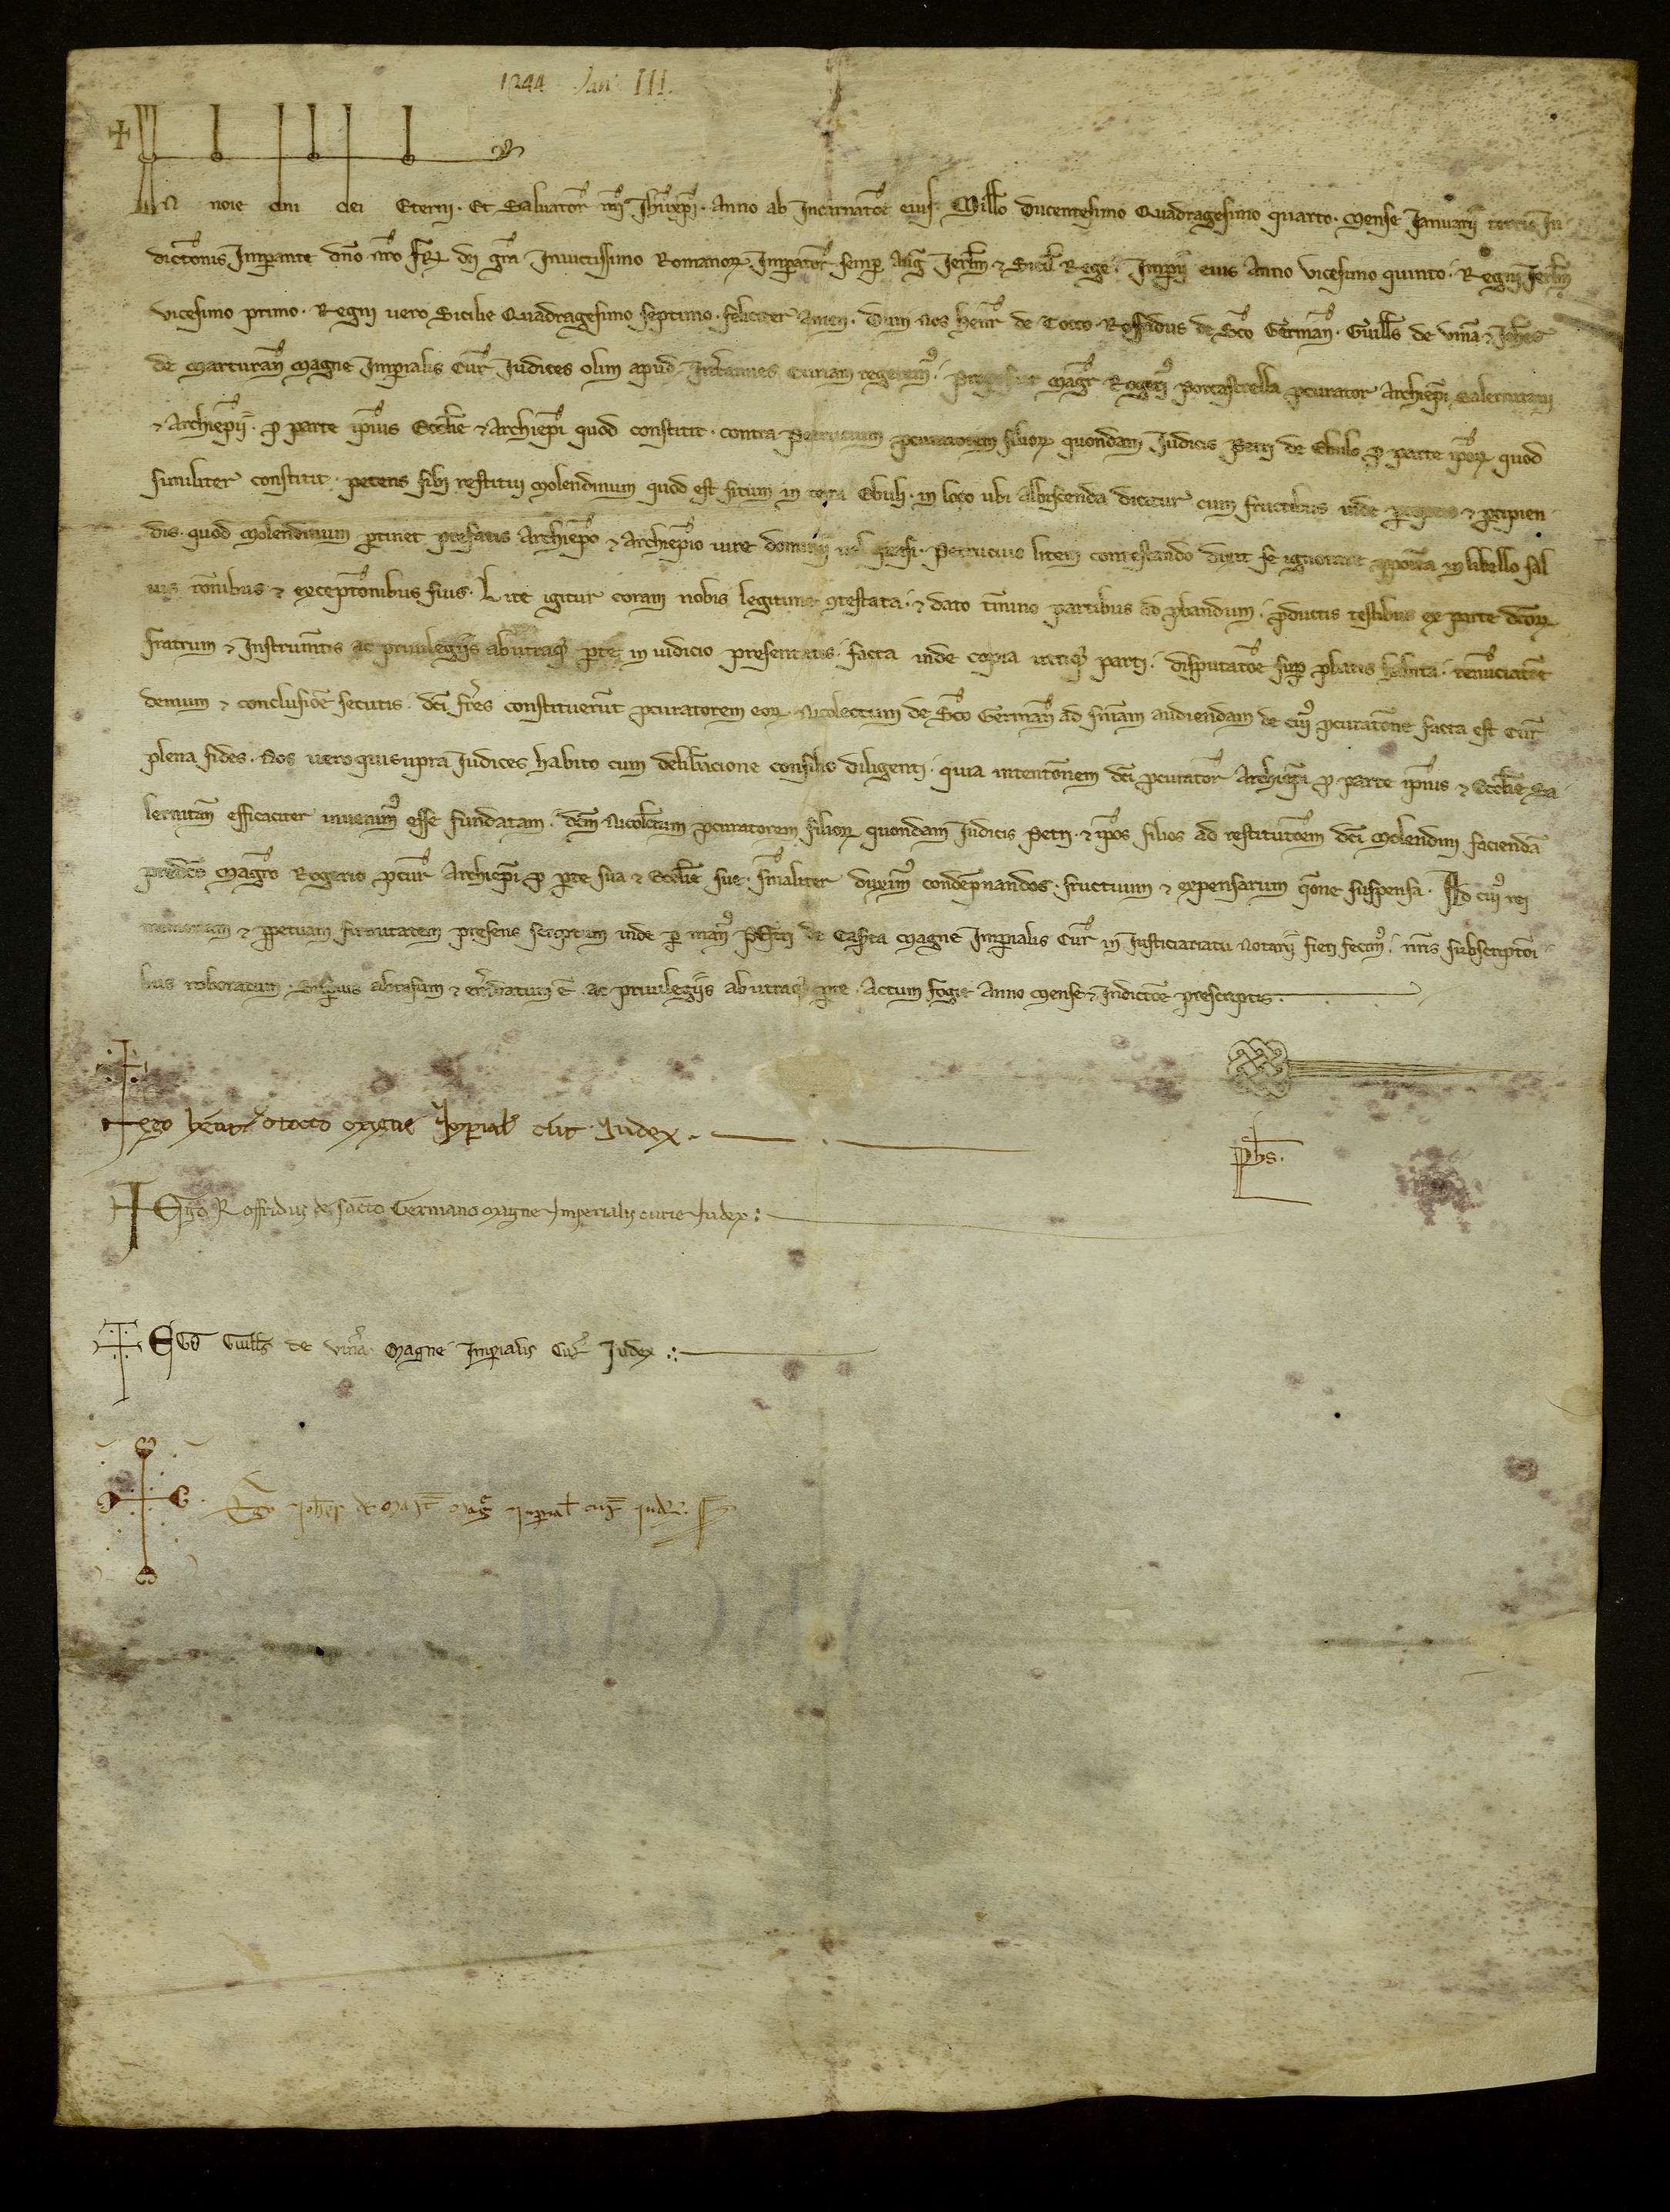 1244 Jan. III.
In noīe dn̄i dei Eterni · Et Saluator̄ nr̄i Jhū xp̄i · Anno ab Incarnatōe eius · Mill̄o Ducentesimo Quadragesimo quarto · Mense Januarij tercie In
dictōnis Imp̄ante dn̄o nr̄o Fr̄. dj gr̄a Inuictissimo Romanoꝝ Imp̄ator̄ semp̄ Auḡ · Jerl̄m · ⁊ Sicil̄ Rege · Imp̄ij eius Anno vicesimo quinto · Regnj Jerl̄m
vicesimo primo · Regnj uero Sicilie Quadragesimo septimo · feliciter amen · Dum nos henr̄ de Tocco · Roffridus de Sc̄o German̄ · Guill̄s de vīna · ⁊ Joh̄es
de Marturan̄ Magne Imp̄ialis Cur̄ Judices olim apud Curiam regerem⁹ · magr̄ Roger̄ Porcastrella ꝓcurator Archiep̄i Salernitani
⁊ Archiep̄ij · ꝓ parte ip̄ius Eccl̄ie ⁊ Archiep̄i quod constitit · contra Petrucium ꝓcuratorem filioꝝ quondam Judicis Petri de Ebulo ꝓ parte ip̄oꝝ quod
similiter constitit · petens sibj restituj Molendinum quod est situm in terra Ebuli · in loco ubi Albiscenda dicitur cum fructibus inde ꝑceptis ⁊ ꝑcipien
dis · quod Molendinum ꝑtinet prefatis Archiep̄o ⁊ Archiep̄io iure dominij uel quasi · Petrucius litem contestando dixit se ignorare ꝓpoīta in libello sal
uis rōnibus ⁊ exceptōnibus suis · Lite igitur coram nobis legitime ꝯtestata · ⁊ dato tm̄ino partibus ad ꝓbandum · ꝓductis testibus ex parte dc̄oꝝ
fratrum ⁊ Instrum̄tis ac priuilegijs ab utraqꝫ ꝑte in iudicio presentatis · facta inde copia utriqꝫ parti · disputatōe suꝑ ꝓbatis habita · renūciatōe
demum ⁊ conclusiōe secutis · dc̄i fr̄es constituerūt ꝓcuratorem eoꝝ Nicolectum de Sc̄o German̄ ad sn̄iam audiendam de cui⁹ ꝓcuratōne facta est Cur̄
plena fides · Nos uero quisupra Judices habito cum delib̄acione consilio diligenti · quia intentōnem dc̄i ꝓcurator̄ Archiep̄i ꝓ parte ip̄ius ⁊ Eccl̄ie Sa
lernitan̄ efficaciter inuenim⁹ esse fundatam · dc̄m Nicolectum ꝓcuratorem filioꝝ quondam Judicis Petri · ⁊ ip̄os filios ad restitutōem dc̄i Molendini faciendā
predc̄o Magr̄o Rogerio ꝓcur̄ Archiep̄i ꝓ ꝑte sua ⁊ Eccl̄ie sue · sn̄ialiter duxim⁹ condēpnandos · fructuum ⁊ expensarum q̄one suspensa · Ad cui⁹ rei
memoriam ⁊ ꝑpetuam firmitatem presens scriptum inde ꝑ man⁹ Petri de Caserta Magne Imp̄ialis Cur̄ in Justiciariatu Notarij fieri fecim⁹ · nr̄is subscriptōi
bus roboratum · abrasum ⁊ em̄datum ē · ac priuilegijs ab utraqꝫ ꝑte · Actum Fogie Anno Mense ⁊ Indictōe prescriptis
Ego henric̄ d tocco magne Imp̄ial̄ cur̄ Judex
Ego Roffridus de sancto Germano magne Imperialis curie Judex
Ego Guill̄s de vīna Magne Imp̄ialis Cur̄ Judex
Ego joh̄es de mart̄ maḡ inp̄ial̄ cur̄ jud̄